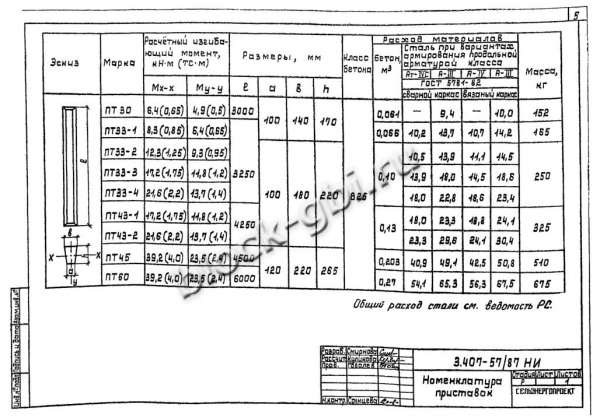 5
Эскиз Марка Расчётный изгибающий момент, кН·м (тс·м) Размеры, мм Класс бетона Расход материалов Масса, кг
Бетон, м³ Сталь при вариантах армирования продольной арматурой класса
Ат-IVC А-III А-IV А-III
ГОСТ 5781-82
сварной каркас вязаный каркас
Mx-x My-y ℓ а в h
ПТ30 6,4(0,65) 4,9(0,5) 3000 100 140 170 0,061 — 9,4 — 10,0 152
ПТ33-1 8,3(0,85) 6,4(0,65) 3250 0,066 10,2 13,7 10,7 14,2 165
ПТ33-2 12,3(1,25) 9,3(0,95) 100 180 220 В25 0,10 10,5 13,9 11,1 14,5 250
ПТ33-3 17,2(1,75) 11,8(1,2) 13,9 18,0 14,5 18,6
ПТ33-4 21,6(2,2) 13,7(1,4) 18,0 22,8 18,6 23,4
ПТ43-1 17,2(1,75) 11,8(1,2) 4250 0,13 18,0 23,3 18,8 24,1 325
ПТ43-2 21,6(2,2) 13,7(1,4) 23,3 29,6 24,1 30,4
ПТ45 39,2(4,0) 23,5(2,4) 4500 120 220 265 0,203 40,9 49,1 42,5 50,8 510
ПТ60 39,2(4,0) 23,5(2,4) 6000 0,27 54,1 65,3 56,3 67,5 675
ℓ
в
х х
а
у
Общий расход стали см. ведомость РС.
block-gbi.ru
Разраб. Смирнова
Рассчит. Куликова
Пров.
Н.контр.
3.407-57/87 НИ
Номенклатура приставок
Стадия Лист Листов
Р 1
СЕЛЬЭНЕРГОПРОЕКТ